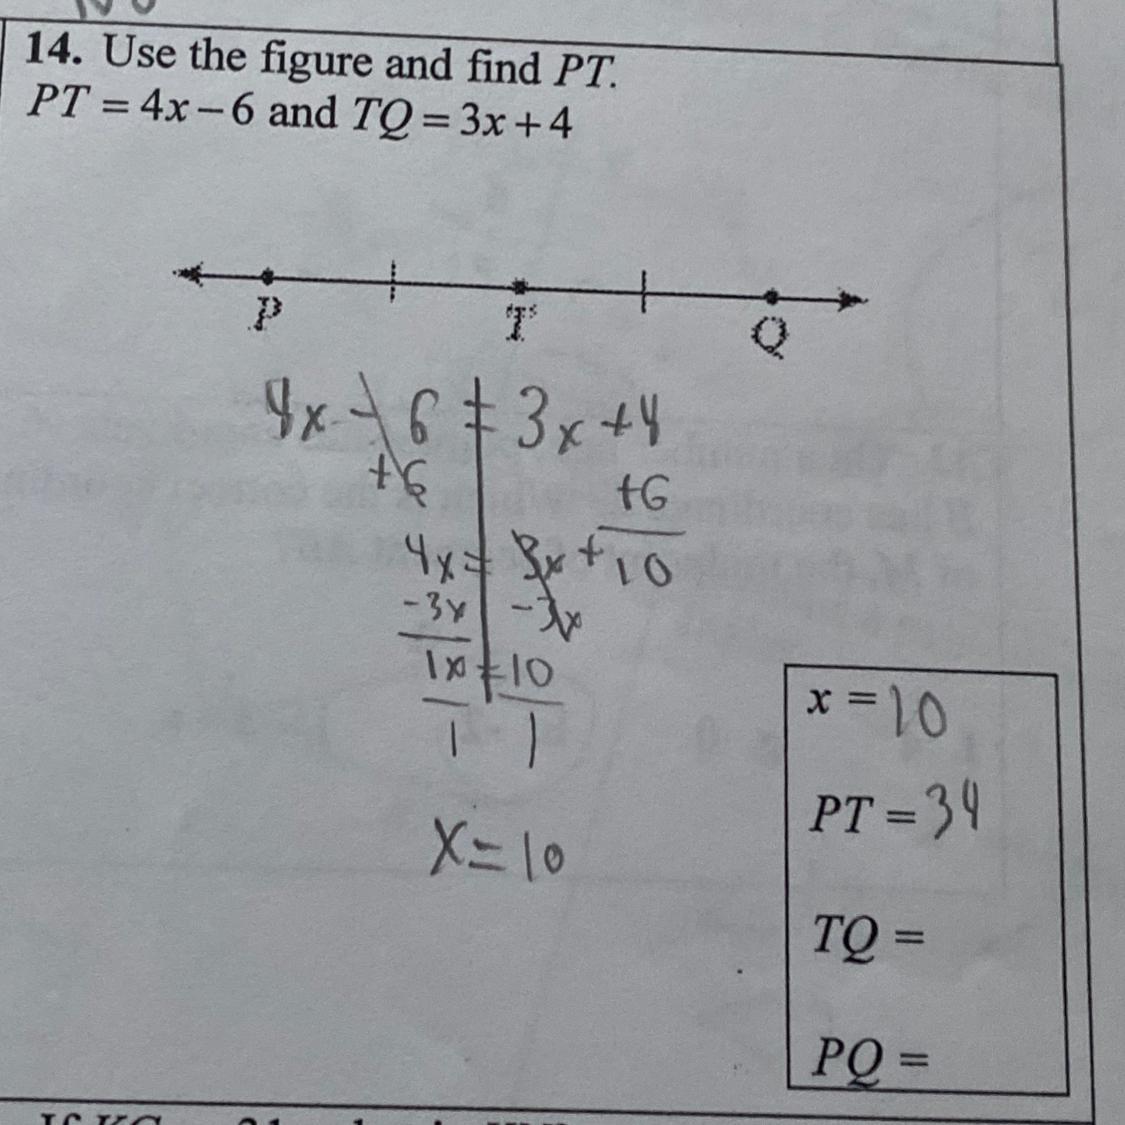 14. Use the figure and find PT.
PT = 4x – 6 and TQ = 3x + 4
P T Q
4x - 6 = 3x + 4
+6 +6
4x = 3x + 10
-3x -3x
1x = 10
1 1
x = 10
x = 10
PT = 34
TQ =
PQ =